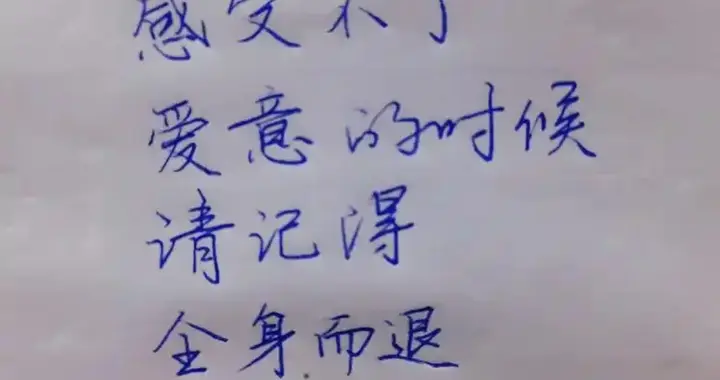 感受不了
爱意的时候
请记得
全身而退